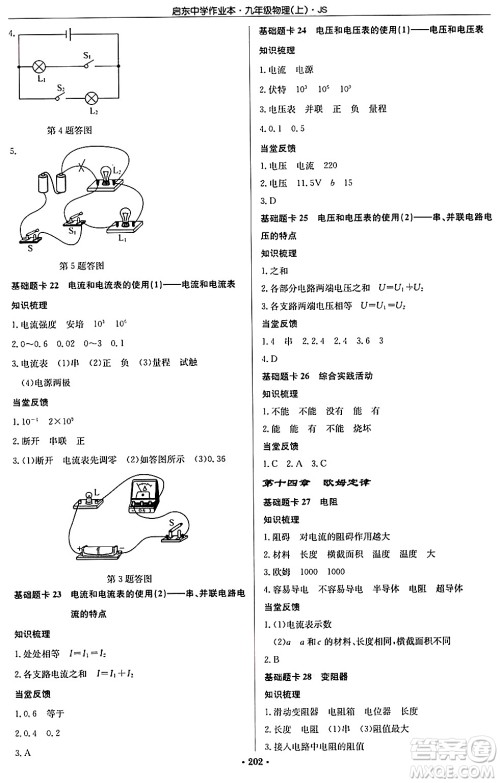 启东中学作业本·九年级物理(上)·JS
4.
S₁
L₁
S₂
L₂
第4题答图
5.
L₂
S₁
S
L₁
第5题答图
基础题卡22 电流和电流表的使用(1)——电流和电流表
知识梳理
1.电流强度 安培 10³ 10⁶
2.0~0.6 0.02 0~3 0.1
3.电流表 (1)串 (2)正 负 (3)量程 试触
(4)电源两极
当堂反馈
1.10⁻¹ 2×10⁵
2.断开 串联 正
3.(1)断开 电流表先调零 (2)如答图所示 (3)0.36
S
第3题答图
基础题卡23 电流和电流表的使用(2)——串、并联电路电
流的特点
知识梳理
1.处处相等 I=I₁=I₂
2.各支路电流之和 I=I₁+I₂
当堂反馈
1.0.6 等于
2.0.3 0.2
3.A
基础题卡24 电压和电压表的使用(1)——电压和电压表
知识梳理
1.电流 电源
2.伏特 10³ 10³ 10³
3.电压表 并联 正 负 量程
4.0.1 0.5
当堂反馈
1.电压 电流 220
2.电压 11.5V 15 4
3.D
基础题卡25 电压和电压表的使用(2)——串、并联电路电
压的特点
知识梳理
1.之和
2.各部分电路两端电压之和 U=U₁+U₂
3.各支路两端电压相等 U=U₁=U₂
当堂反馈
1.4 串 2.4.5 1.5 3.6 6
4.D
基础题卡26 综合实践活动
知识梳理
1.能 不能 不能 能
2.不能 能 不能 烧坏
当堂反馈
1.C 2.A 3.C
第十四章 欧姆定律
基础题卡27 电阻
知识梳理
1.阻碍 对电流的阻碍作用越大
2.材料 长度 横截面积 温度 大
3.欧姆 1000 1000
4.容易导电 不容易导电 半导体 超导体
当堂反馈
1.(1)电流表示数
(2)a a和c的材料、长度相同,横截面积不同
2.C 3.D
基础题卡28 变阻器
知识梳理
1.滑动变阻器 电阻箱 电位器 长度
2.串 一上一下 (1)串 (2)阻值最大
3.接入电路中电阻的阻值
·202·